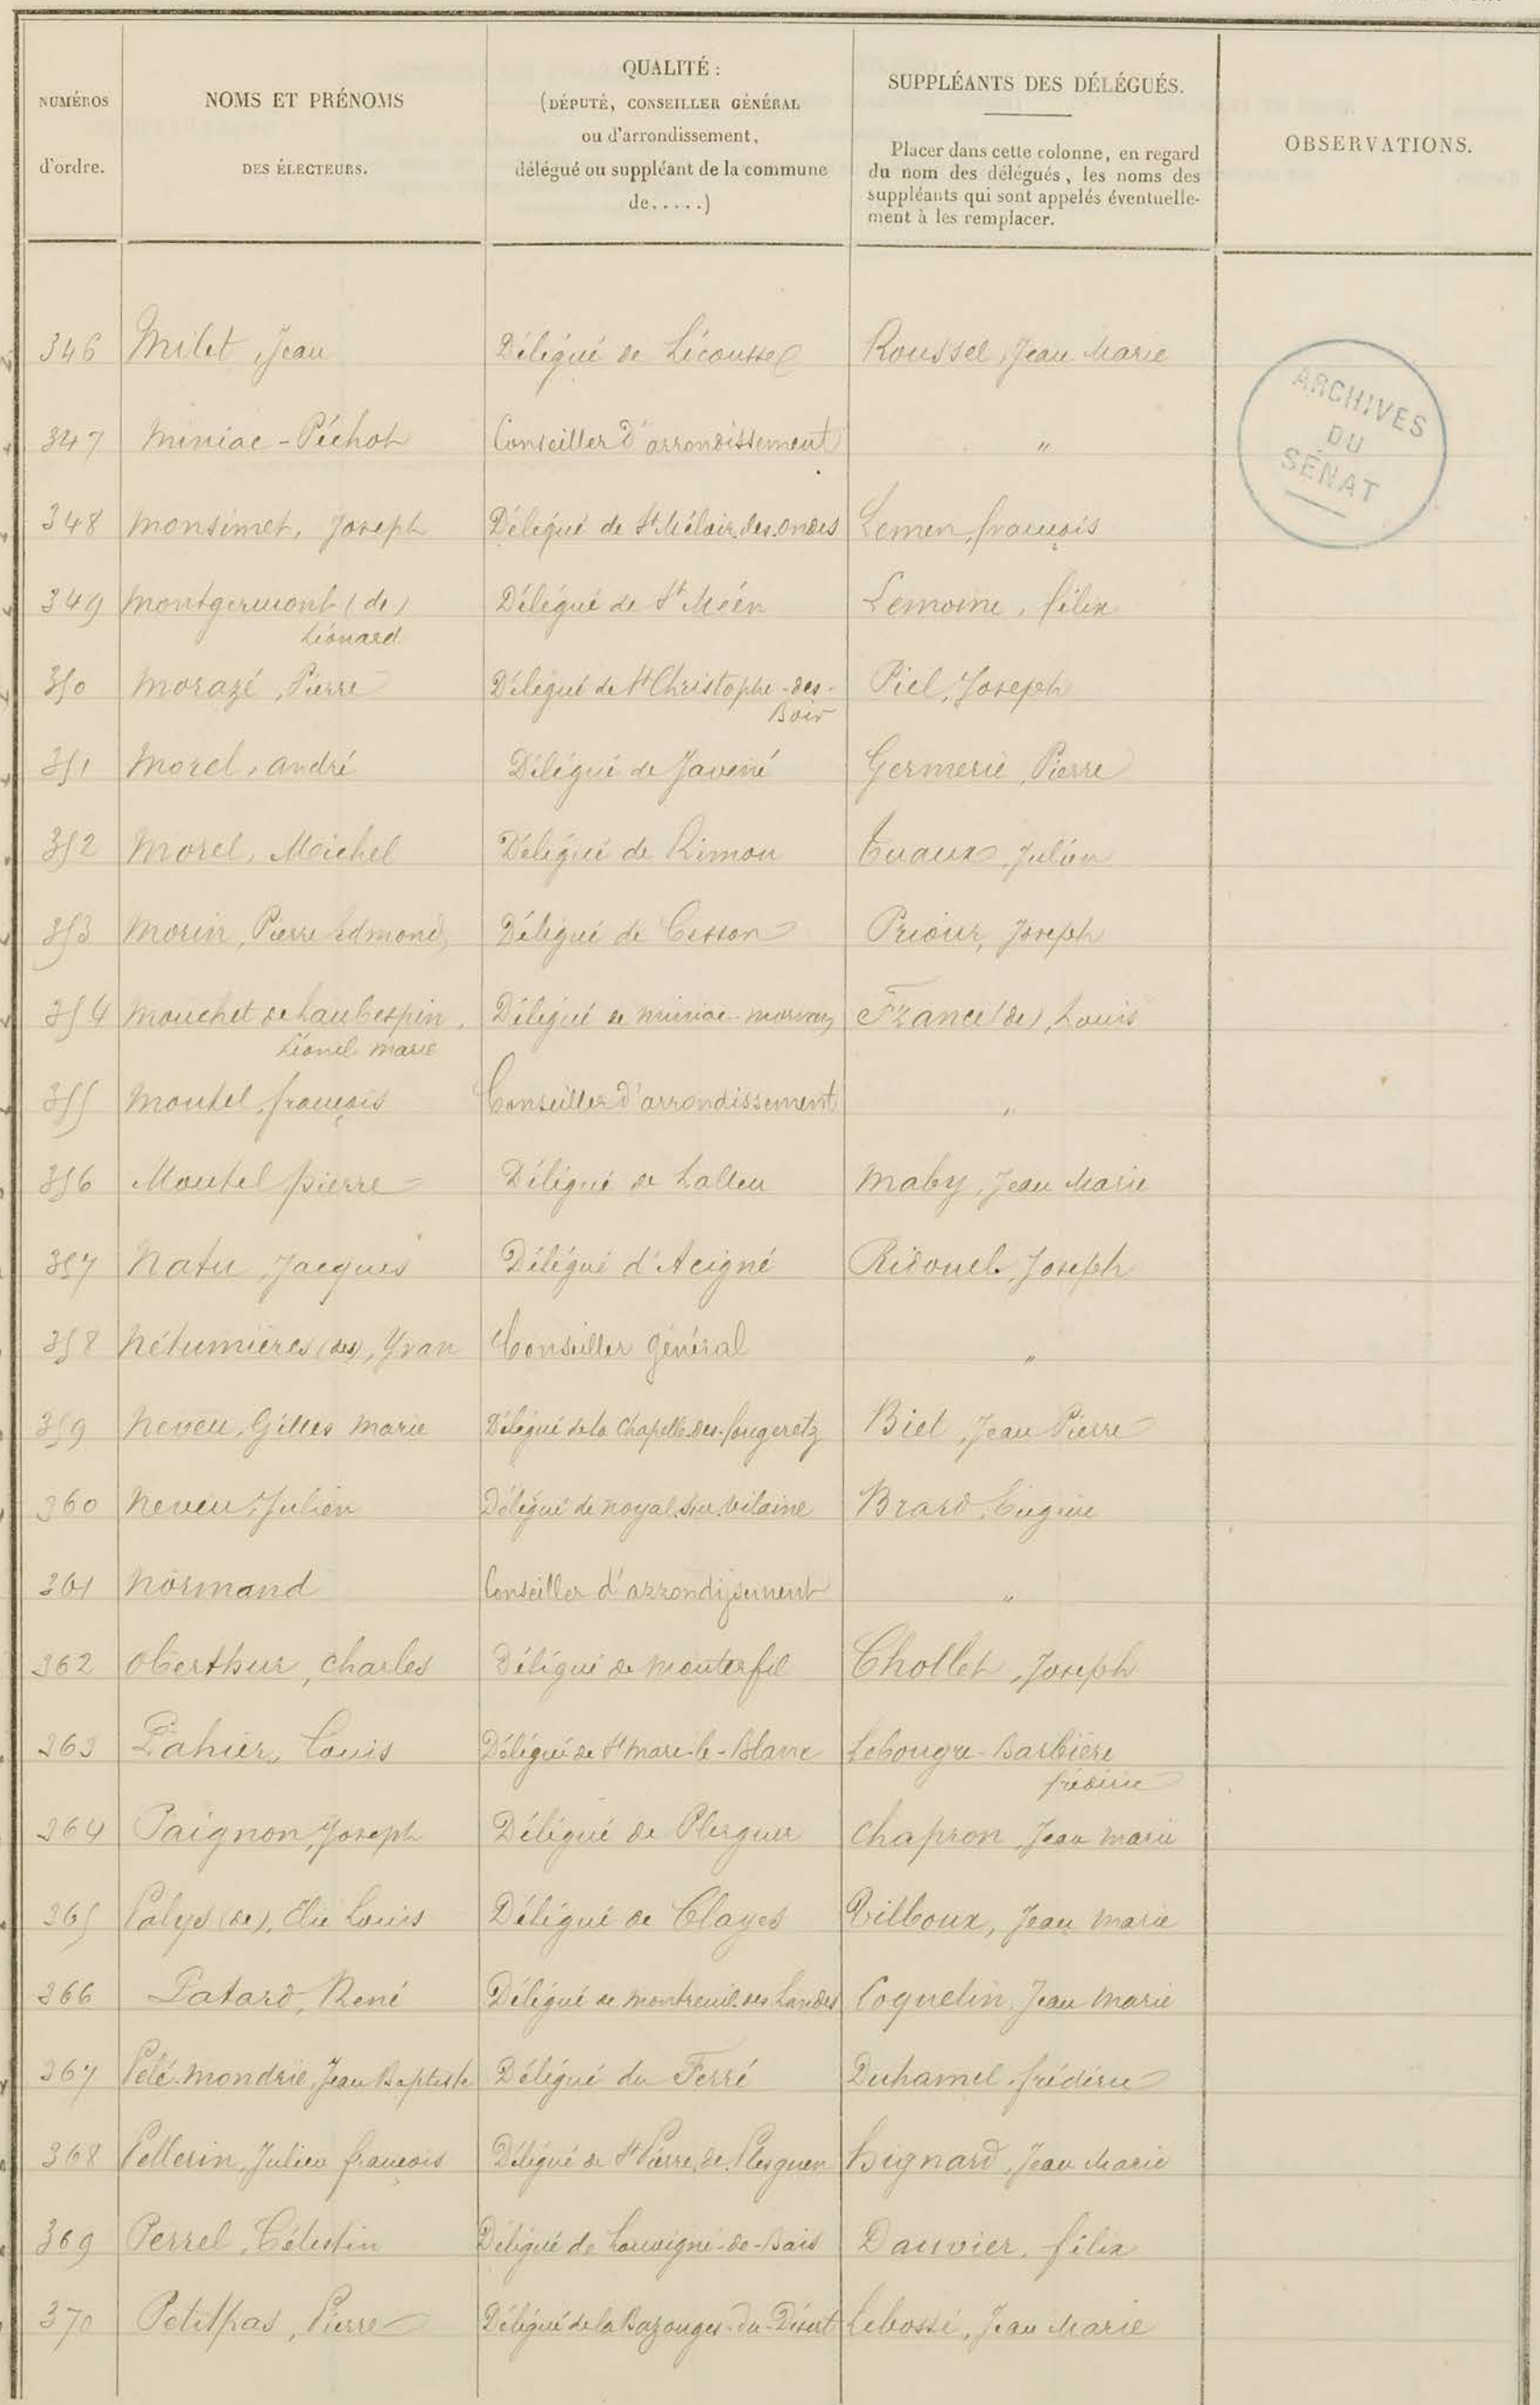 NUMÉROS d'ordre.
NOMS ET PRÉNOMS DES ÉLECTEURS.
QUALITÉ :
(DÉPUTÉ, CONSEILLER GÉNÉRAL
ou d'arrondissement,
délégué ou suppléant de la commune
de.....)
SUPPLÉANTS DES DÉLÉGUÉS.
Placer dans cette colonne, en regard
du nom des délégués, les noms des
suppléants qui sont appelés éventuelle-
ment à les remplacer.
OBSERVATIONS.
ARCHIVES
DU
SÉNAT
346 Milet, Jean Délégué de Lécousse Roussel, Jean Marie
347 Miniac-Péchot Conseiller d'arrondissement "
348 Monsimet, Joseph Délégué de St Méloir des ondes Lemen, françois
349 Montgermont (de) Délégué de St Méen Lemoine, félix
Léonard
350 Morazé, Pierre Délégué de St Christophe-des- Piel, Joseph
Bois
351 Morel, andré Délégué de Javené Germerie, Pierre
352 Morel, Michel Délégué de Rimou Tuaux, Julien
353 Morin, Pierre Edmond, Délégué de Cesson Priour, Joseph
354 Mouchet de Laubespin, Délégué de Miniac-morvan France (de), Louis
Léonel Marie
355 Moutel, françois Conseiller d'arrondissement "
356 Moutel pierre Délégué de Lalleu Maby, Jean Marie
357 Natu, Jacques Délégué d'Acigné Ridouel, Joseph
358 Nétumières (des), Yvan Conseiller Général "
359 Neveu, Gilles Marie Délégué de la Chapelle-des-fougeretz Biet, Jean Pierre
360 Neveu, Julien Délégué de noyal sur vilaine Brard, Eugène
361 Normand Conseiller d'arrondissement "
362 Oberthur, Charles Délégué de Monterfil Chollet, Joseph
363 Pahier, Louis Délégué de St Marc-le-Blanc Lebougre-Barbière
frédéric
364 Paignon, Joseph Délégué de Plerguer Chapron, Jean Marie
365 Palys (de), Élie Louis Délégué de Clayes Vilboux, Jean Marie
366 Patard, René Délégué de Montreuil des Landes Coquelin, Jean Marie
367 Pelé-Mondrie, Jean Baptiste Délégué du Ferré Duhamel, frédéric
368 Pellerin, Julien françois Délégué de St Pierre de Plesguen Bignard, Jean Marie
369 Perrel, Célestin Délégué de Louvigné-de-Bais Dauvier, félix
370 Petitpas, Pierre Délégué de la Bazouges-du-Désert Lebossé, Jean Marie